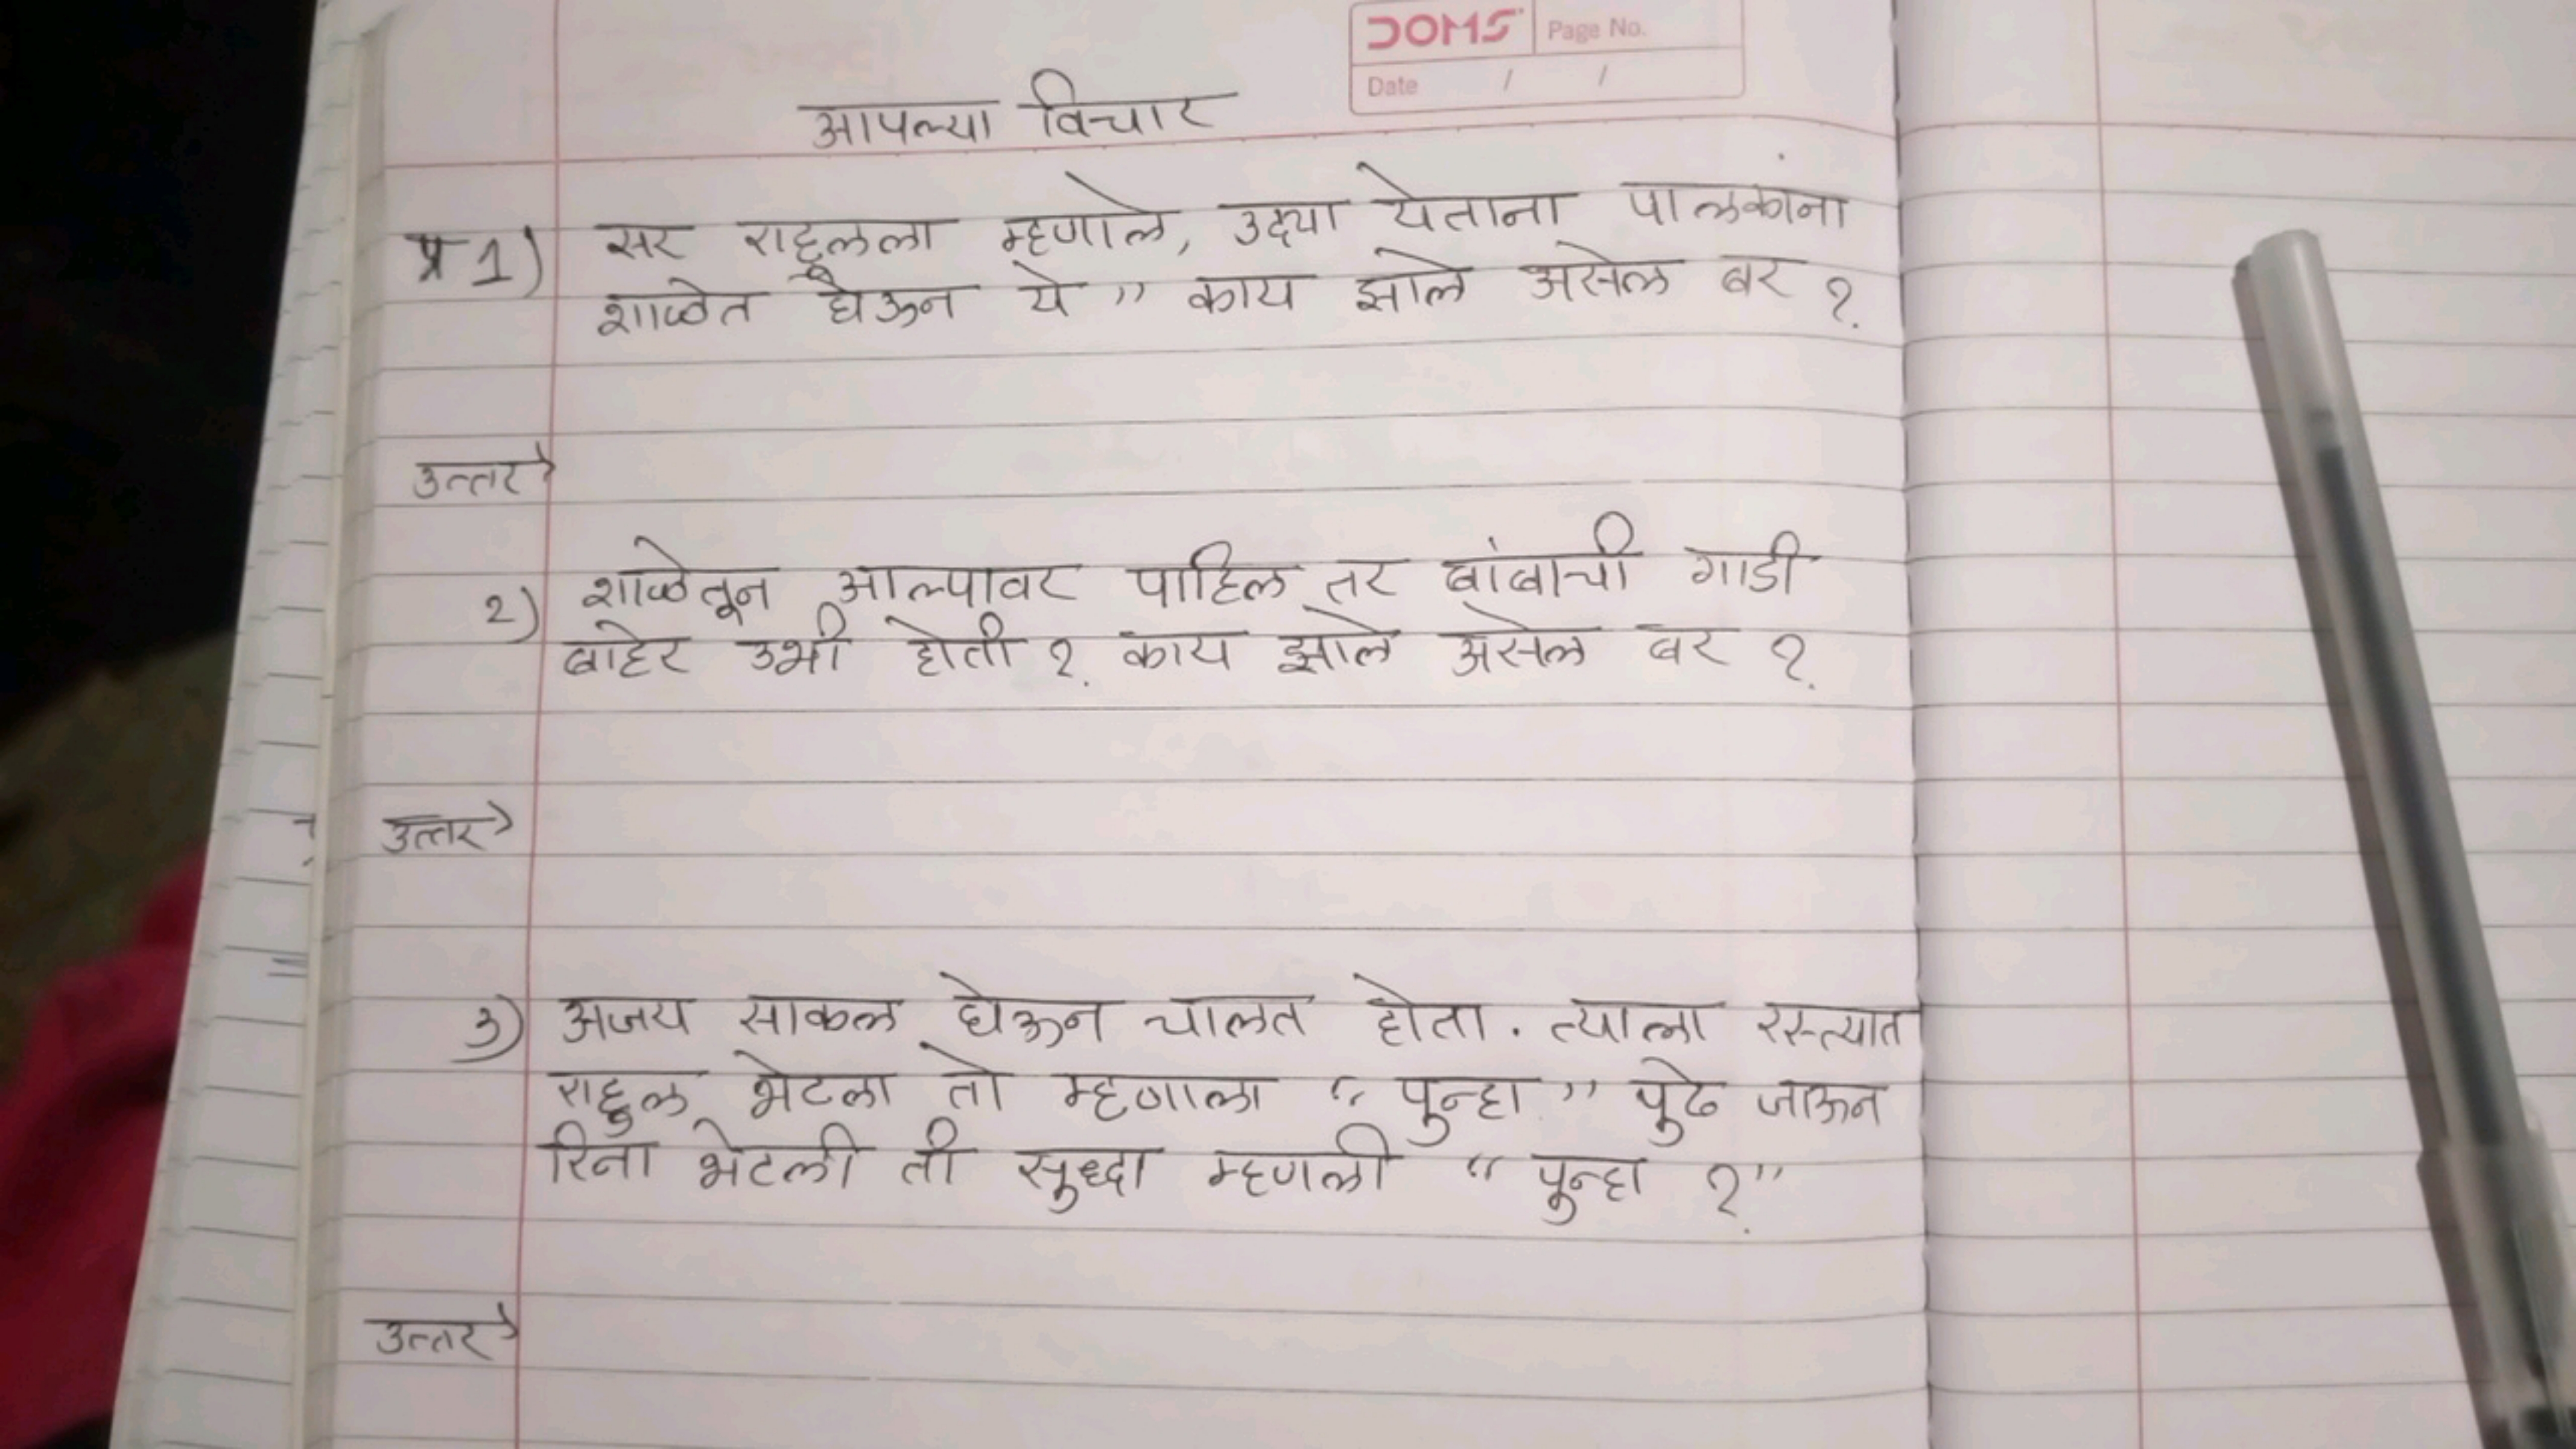 DOMS Page No.
Date / /
आपल्या विचार
प्र 1) सर राहूलला म्हणाले, उद्या येताना पालकांना
शाळेत घेऊन ये " काय झाले असेल बर ?
उत्तर→
2) शाळेतून आल्यावर पाहिल तर बांबाची गाडी
बाहेर उभी होती ? काय झाले असेल बर ?
उत्तर→
3) अजय साकल घेऊन चालत होता. त्याला रस्त्यात
राहूल भेटला तो म्हणाला " पुन्हा " पुढे जाऊन
रिना भेटली ती सुध्दा म्हणली " पुन्हा ?"
उत्तर→